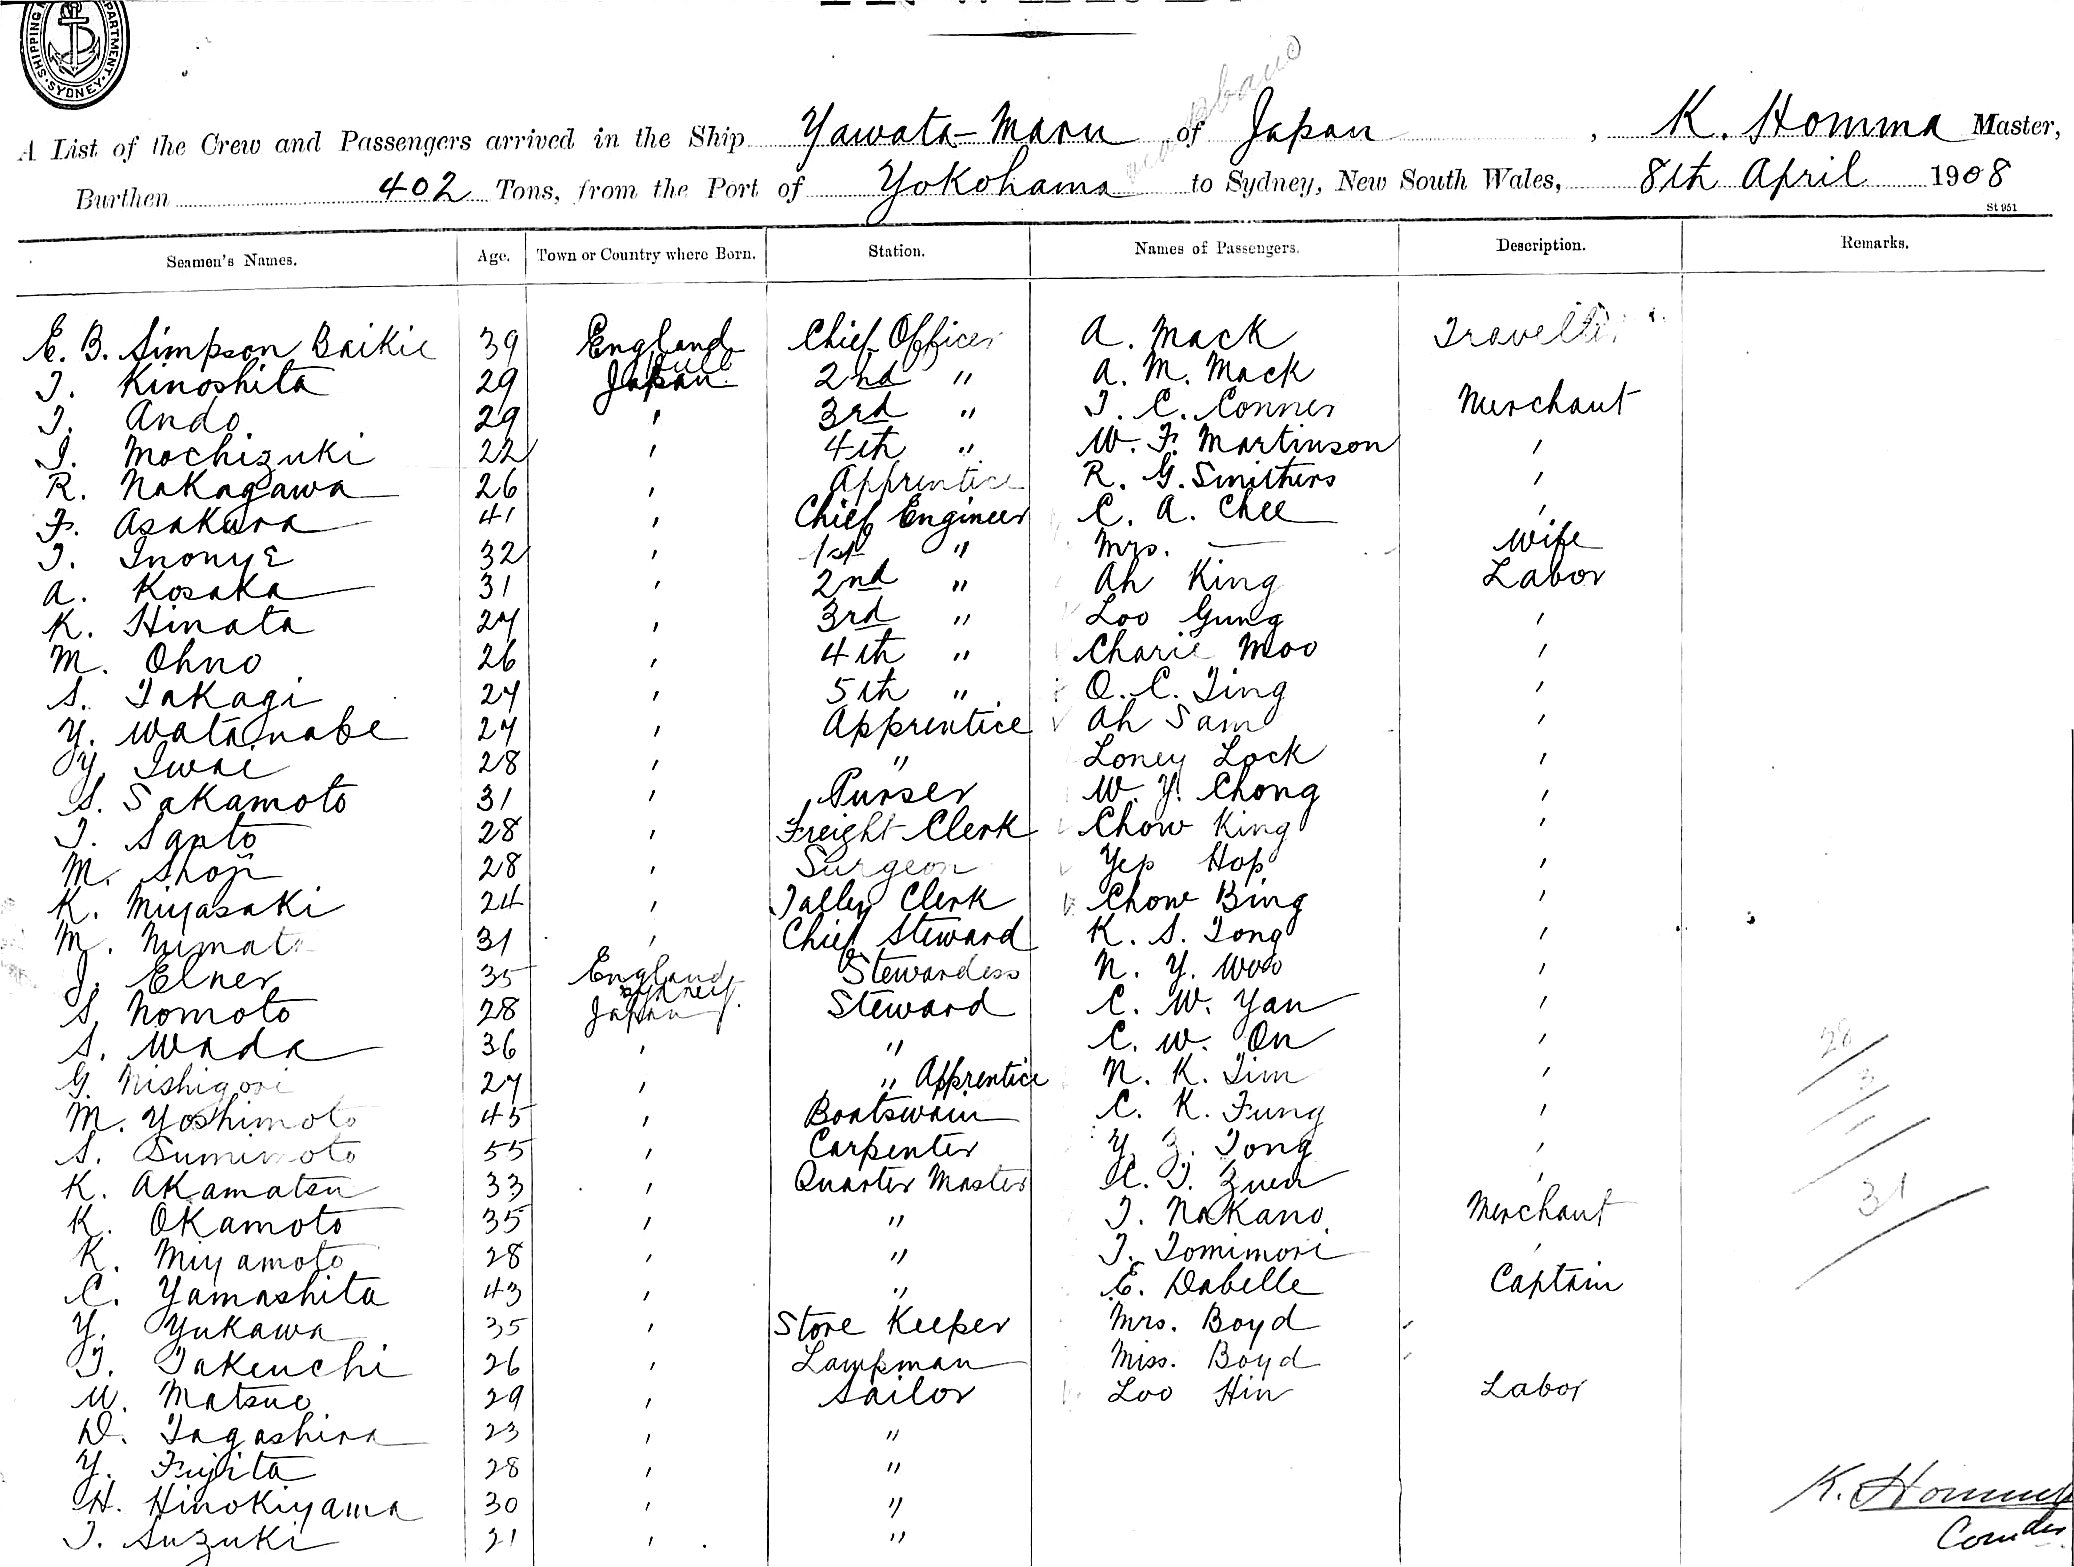 SHIPPING
DEPARTMENT
SYDNEY
A List of the Crew and Passengers arrived in the Ship Yawata Maru of Japan , K. Homma Master,
Burthen 402 Tons, from the Port of Yokohama to Sydney, New South Wales, 8th April 1908
St 951
Seamen's Names. Age. Town or Country where Born. Station. Names of Passengers. Description. Remarks.
E. B. Simpson Baikie 39 England Chief Officer A. Mack Traveller
T. Kinoshita 29 Japan 2nd " A. M. Mack
T. Ando 29 ' 3rd " T. C. Conner Merchant
I. Mochizuki 22 ' 4th " W. F. Martinson '
R. Nakagawa 26 ' Apprentice R. G. Smithers '
F. Asakura 41 ' Chief Engineer C. A. Chee '
T. Inouye 32 ' 1st " Mrs. — Wife
A. Kosaka 31 ' 2nd " Ah King Labor
K. Hinata 27 ' 3rd " Loo Gung '
M. Ohno 26 ' 4th " Charie Moo '
S. Takagi 27 ' 5th " O. C. Ting '
Y. Watanabe 27 ' Apprentice Ah Sam '
Y. Iwai 28 ' " Loney Lock '
S. Sakamoto 31 ' Purser W. Y. Chong '
T. Santo 28 ' Freight Clerk Chow King '
M. Shoji 28 ' Surgeon Yep Hop '
K. Miyasaki 24 ' Talley Clerk Chow Bing '
M. Numata 31 ' Chief Steward K. S. Tong '
J. Elner 35 England Stewardess N. Y. Woo '
Sydney
S. Nomoto 28 Japan Steward C. W. Yan '
S. Wada 36 ' " C. W. On '
G. Nishigori 27 ' " Apprentice N. K. Tim '
M. Yoshimoto 45 ' Boatswain C. K. Fung '
S. Sumimoto 55 ' Carpenter Y. Z. Tong '
K. Akamatsu 33 ' Quarter Master T. Zuen '
K. Okamoto 35 ' " T. Nakano Merchant
K. Miyamoto 28 ' " T. Tomimori '
C. Yamashita 43 ' " E. Dabelle Captain
Y. Yukawa 35 ' Store Keeper Mrs. Boyd
T. Takeuchi 26 ' Lampman Miss. Boyd
U. Matsuo 29 ' Sailor Loo Hin Labor
D. Tagashira 23 ' "
Y. Fujita 28 ' "
H. Hinokiyama 30 ' "
T. Suzuki 21 ' "
28
3
31
K. Homma
Comder